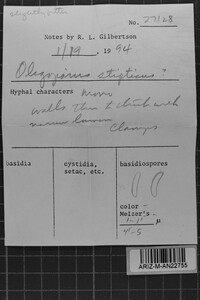 slightly bitter
No. 27128
Notes by R. L. Gilbertson
1/89, 1994
Oligoporus stipticus
Hyphal characters Mono
walls thin t thick with
narrow lumen
Clamps
basidia
cystidia,
setae, etc.
basidiospores
color -
Melzer's -
µ
4-5
ARIZ-M-AN22755